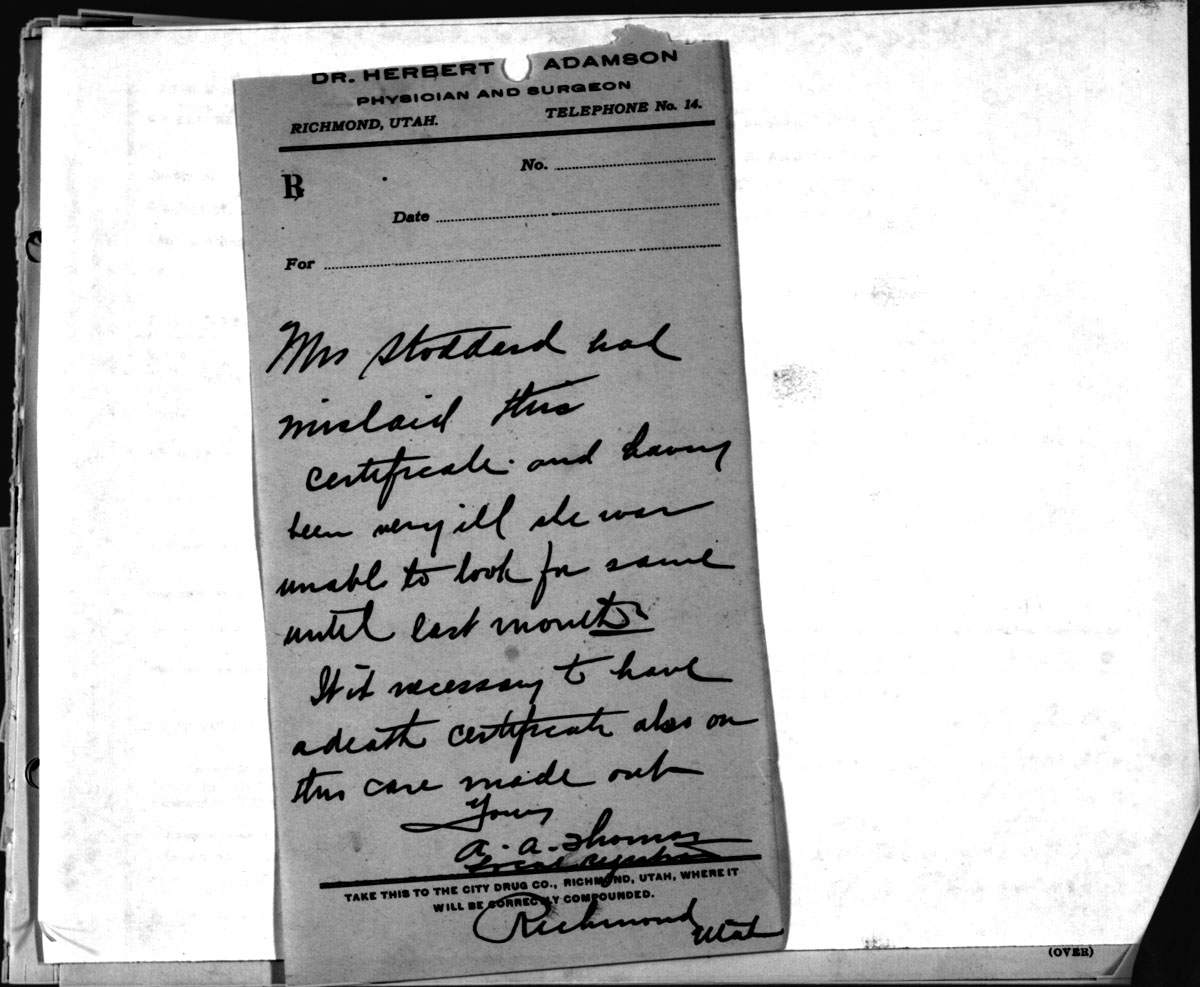 DR. HERBERT ADAMSON
PHYSICIAN AND SURGEON
RICHMOND, UTAH. TELEPHONE No. 14.
℞ No.
Date
For
Mrs Stoddard had
mislaid this
certificate and having
been very ill she was
unable to look for same
until last month
Is it necessary to have
a death certificate also on
this case made out
Yours
A. A. Thomas
Local Registrar
TAKE THIS TO THE CITY DRUG CO., RICHMOND, UTAH, WHERE IT
WILL BE CORRECTLY COMPOUNDED.
Richmond
Utah
(OVER)